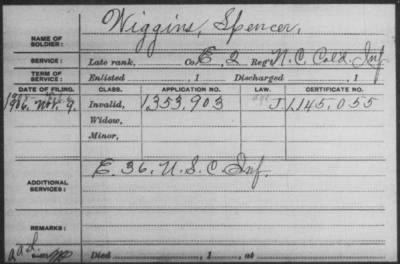 NAME OF SOLDIER: Wiggins, Spencer,
SERVICE: Late rank, Co. E, 2 Reg't N.C. Cold. Inf.
TERM OF SERVICE: Enlisted , 1 Discharged , 1
DATE OF FILING. CLASS. APPLICATION NO. LAW. CERTIFICATE NO.
1906. Nov. 9. Invalid, 1,353,903 J 1,145,055
Widow,
Minor,
ADDITIONAL SERVICES: E. 36. U.S.C. Inf.
REMARKS:
Died , 1 , at